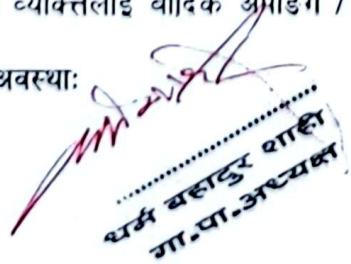 व्यक्तिलाई बौद्धिक अपाङ्ग /
अवस्थाः
धर्म बहादुर शाही
गा.पा.अध्यक्ष